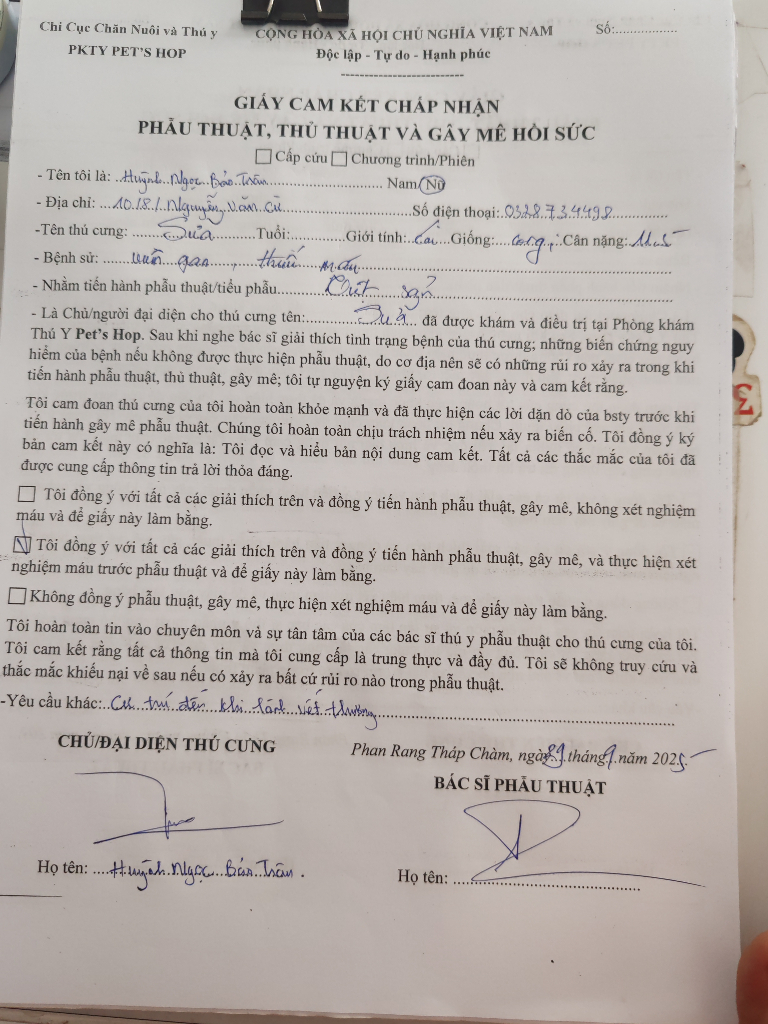 Chi Cục Chăn Nuôi và Thú y
PKTY PET'S HOP
CỘNG HÒA XÃ HỘI CHỦ NGHĨA VIỆT NAM
Độc lập - Tự do - Hạnh phúc
Số:.................
GIẤY CAM KẾT CHẤP NHẬN
PHẪU THUẬT, THỦ THUẬT VÀ GÂY MÊ HỒI SỨC
☐ Cấp cứu ☐ Chương trình/Phiên
- Tên tôi là: Huỳnh Ngọc Bảo Trân Nam Nữ
- Địa chỉ: 10.18.1 Nguyễn Văn Cừ Số điện thoại: 0328734498
-Tên thú cưng: Sữa Tuổi: Giới tính: Cái Giống: corgi Cân nặng:
- Bệnh sử: viêm gan, thiếu máu
- Nhằm tiến hành phẫu thuật/tiểu phẫu
- Là Chủ/người đại diện cho thú cưng tên: Sữa đã được khám và điều trị tại Phòng khám
Thú Y Pet's Hop. Sau khi nghe bác sĩ giải thích tình trạng bệnh của thú cưng; những biến chứng nguy
hiểm của bệnh nếu không được thực hiện phẫu thuật, do cơ địa nên sẽ có những rủi ro xảy ra trong khi
tiến hành phẫu thuật, thủ thuật, gây mê; tôi tự nguyện ký giấy cam đoan này và cam kết rằng.
Tôi cam đoan thú cưng của tôi hoàn toàn khỏe mạnh và đã thực hiện các lời dặn dò của bsty trước khi
tiến hành gây mê phẫu thuật. Chúng tôi hoàn toàn chịu trách nhiệm nếu xảy ra biến cố. Tôi đồng ý ký
bản cam kết này có nghĩa là: Tôi đọc và hiểu bản nội dung cam kết. Tất cả các thắc mắc của tôi đã
được cung cấp thông tin trả lời thỏa đáng.
☐ Tôi đồng ý với tất cả các giải thích trên và đồng ý tiến hành phẫu thuật, gây mê, không xét nghiệm
máu và để giấy này làm bằng.
☑ Tôi đồng ý với tất cả các giải thích trên và đồng ý tiến hành phẫu thuật, gây mê, và thực hiện xét
nghiệm máu trước phẫu thuật và để giấy này làm bằng.
☐ Không đồng ý phẫu thuật, gây mê, thực hiện xét nghiệm máu và để giấy này làm bằng.
Tôi hoàn toàn tin vào chuyên môn và sự tận tâm của các bác sĩ thú y phẫu thuật cho thú cưng của tôi.
Tôi cam kết rằng tất cả thông tin mà tôi cung cấp là trung thực và đầy đủ. Tôi sẽ không truy cứu và
thắc mắc khiếu nại về sau nếu có xảy ra bất cứ rủi ro nào trong phẫu thuật.
-Yêu cầu khác: Lưu trú đến khi lành vết thương
CHỦ/ĐẠI DIỆN THÚ CƯNG
Phan Rang Tháp Chàm, ngày 29 tháng 9 năm 2025
BÁC SĨ PHẪU THUẬT
Họ tên: Huỳnh Ngọc Bảo Trân.
Họ tên: ......................................